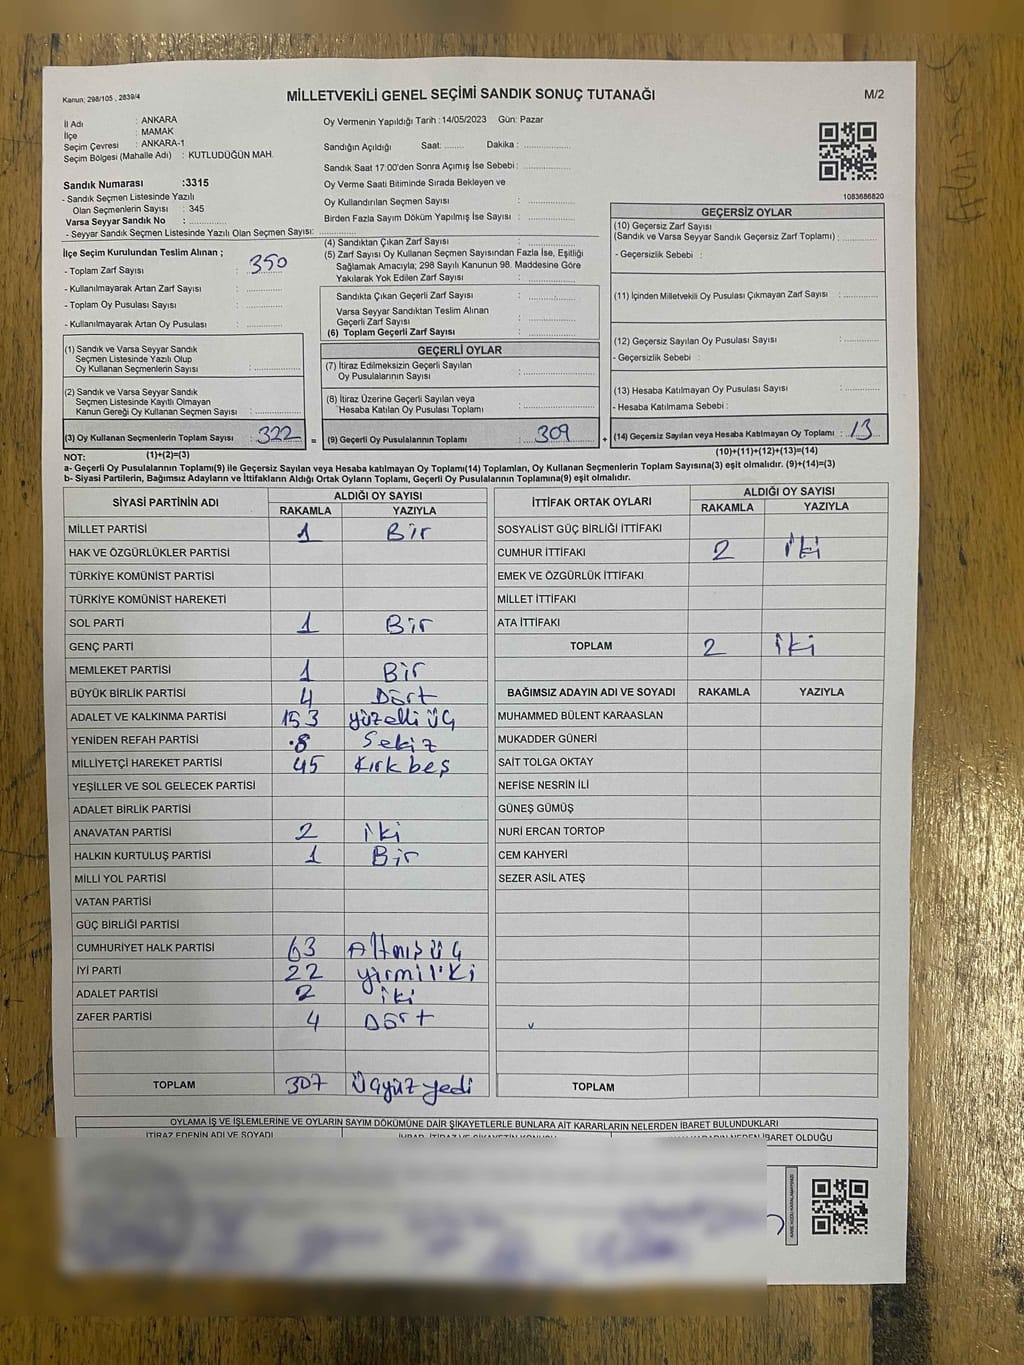 Kanun; 298/105 , 2839/4
MİLLETVEKİLİ GENEL SEÇİMİ SANDIK SONUÇ TUTANAĞI
M/2
İl Adı : ANKARA
İlçe : MAMAK
Seçim Çevresi : ANKARA-1
Seçim Bölgesi (Mahalle Adı) : KUTLUDÜĞÜN MAH.
Sandık Numarası :3315
- Sandık Seçmen Listesinde Yazılı
Olan Seçmenlerin Sayısı : 345
Varsa Seyyar Sandık No : ............
- Seyyar Sandık Seçmen Listesinde Yazılı Olan Seçmen Sayısı: ............
Oy Vermenin Yapıldığı Tarih :14/05/2023 Gün: Pazar
Sandığın Açıldığı Saat: ........ Dakika : ................
Sandık Saat 17:00'den Sonra Açımış İse Sebebi : ................
Oy Verme Saati Bitiminde Sırada Bekleyen ve
Oy Kullandırılan Seçmen Sayısı : ................
Birden Fazla Sayım Döküm Yapılmış İse Sayısı : ................
1083686820
İlçe Seçim Kurulundan Teslim Alınan ;
- Toplam Zarf Sayısı : 350
- Kullanılmayarak Artan Zarf Sayısı : ............
- Toplam Oy Pusulası Sayısı : ............
- Kullanılmayarak Artan Oy Pusulası : ............
(1) Sandık ve Varsa Seyyar Sandık
Seçmen Listesinde Yazılı Olup
Oy Kullanan Seçmenlerin Sayısı : ............
(2) Sandık ve Varsa Seyyar Sandık
Seçmen Listesinde Kayıtlı Olmayan
Kanun Gereği Oy Kullanan Seçmen Sayısı : ............
(3) Oy Kullanan Seçmenlerin Toplam Sayısı : 322
(4) Sandıktan Çıkan Zarf Sayısı : ............
(5) Zarf Sayısı Oy Kullanan Seçmen Sayısından Fazla İse, Eşitliği
Sağlamak Amacıyla; 298 Sayılı Kanunun 98. Maddesine Göre
Yakılarak Yok Edilen Zarf Sayısı : ............
Sandıkta Çıkan Geçerli Zarf Sayısı : ............
Varsa Seyyar Sandıktan Teslim Alınan
Geçerli Zarf Sayısı : ............
(6) Toplam Geçerli Zarf Sayısı : ............
GEÇERLİ OYLAR
(7) İtiraz Edilmeksizin Geçerli Sayılan
Oy Pusulalarının Sayısı : ............
(8) İtiraz Üzerine Geçerli Sayılan veya
Hesaba Katılan Oy Pusulası Toplamı : ............
= (9) Geçerli Oy Pusulalarının Toplamı : 309
GEÇERSİZ OYLAR
(10) Geçersiz Zarf Sayısı
(Sandık ve Varsa Seyyar Sandık Geçersiz Zarf Toplamı) : ............
- Geçersizlik Sebebi :
(11) İçinden Milletvekili Oy Pusulası Çıkmayan Zarf Sayısı : ............
(12) Geçersiz Sayılan Oy Pusulası Sayısı : ............
- Geçersizlik Sebebi :
(13) Hesaba Katılmayan Oy Pusulası Sayısı : ............
- Hesaba Katılmama Sebebi :
+ (14) Geçersiz Sayılan veya Hesaba Katılmayan Oy Toplamı : 13
NOT: (1)+(2)=(3) (10)+(11)+(12)+(13)=(14)
a- Geçerli Oy Pusulalarının Toplamı(9) ile Geçersiz Sayılan veya Hesaba katılmayan Oy Toplamı(14) Toplamları, Oy Kullanan Seçmenlerin Toplam Sayısına(3) eşit olmalıdır. (9)+(14)=(3)
b- Siyasi Partilerin, Bağımsız Adayların ve İttifakların Aldığı Ortak Oyların Toplamı, Geçerli Oy Pusulalarının Toplamına(9) eşit olmalıdır.
SİYASİ PARTİNİN ADI ALDIĞI OY SAYISI
RAKAMLA YAZIYLA
MİLLET PARTİSİ 1 Bir
HAK VE ÖZGÜRLÜKLER PARTİSİ
TÜRKİYE KOMÜNİST PARTİSİ
TÜRKİYE KOMÜNİST HAREKETİ
SOL PARTİ 1 Bir
GENÇ PARTİ
MEMLEKET PARTİSİ 1 Bir
BÜYÜK BİRLİK PARTİSİ 4 Dört
ADALET VE KALKINMA PARTİSİ 153 yüzelli üç
YENİDEN REFAH PARTİSİ 8 Sekiz
MİLLİYETÇİ HAREKET PARTİSİ 45 Kırk beş
YEŞİLLER VE SOL GELECEK PARTİSİ
ADALET BİRLİK PARTİSİ
ANAVATAN PARTİSİ 2 iki
HALKIN KURTULUŞ PARTİSİ 1 Bir
MİLLİ YOL PARTİSİ
VATAN PARTİSİ
GÜÇ BİRLİĞİ PARTİSİ
CUMHURİYET HALK PARTİSİ 63 Altmış üç
İYİ PARTİ 22 yirmi iki
ADALET PARTİSİ 2 iki
ZAFER PARTİSİ 4 Dört
TOPLAM 307 Üçyüz yedi
İTTİFAK ORTAK OYLARI ALDIĞI OY SAYISI
RAKAMLA YAZIYLA
SOSYALİST GÜÇ BİRLİĞİ İTTİFAKI
CUMHUR İTTİFAKI 2 iki
EMEK VE ÖZGÜRLÜK İTTİFAKI
MİLLET İTTİFAKI
ATA İTTİFAKI
TOPLAM 2 iki
BAĞIMSIZ ADAYIN ADI VE SOYADI RAKAMLA YAZIYLA
MUHAMMED BÜLENT KARAASLAN
MUKADDER GÜNERİ
SAİT TOLGA OKTAY
NEFİSE NESRİN İLİ
GÜNEŞ GÜMÜŞ
NURİ ERCAN TORTOP
CEM KAHYERİ
SEZER ASİL ATEŞ
TOPLAM
OYLAMA İŞ VE İŞLEMLERİNE VE OYLARIN SAYIM DÖKÜMÜNE DAİR ŞİKAYETLERLE BUNLARA AİT KARARLARIN NELERDEN İBARET BULUNDUKLARI
İTİRAZ EDENİN ADI VE SOYADI
İBARET OLDUĞU